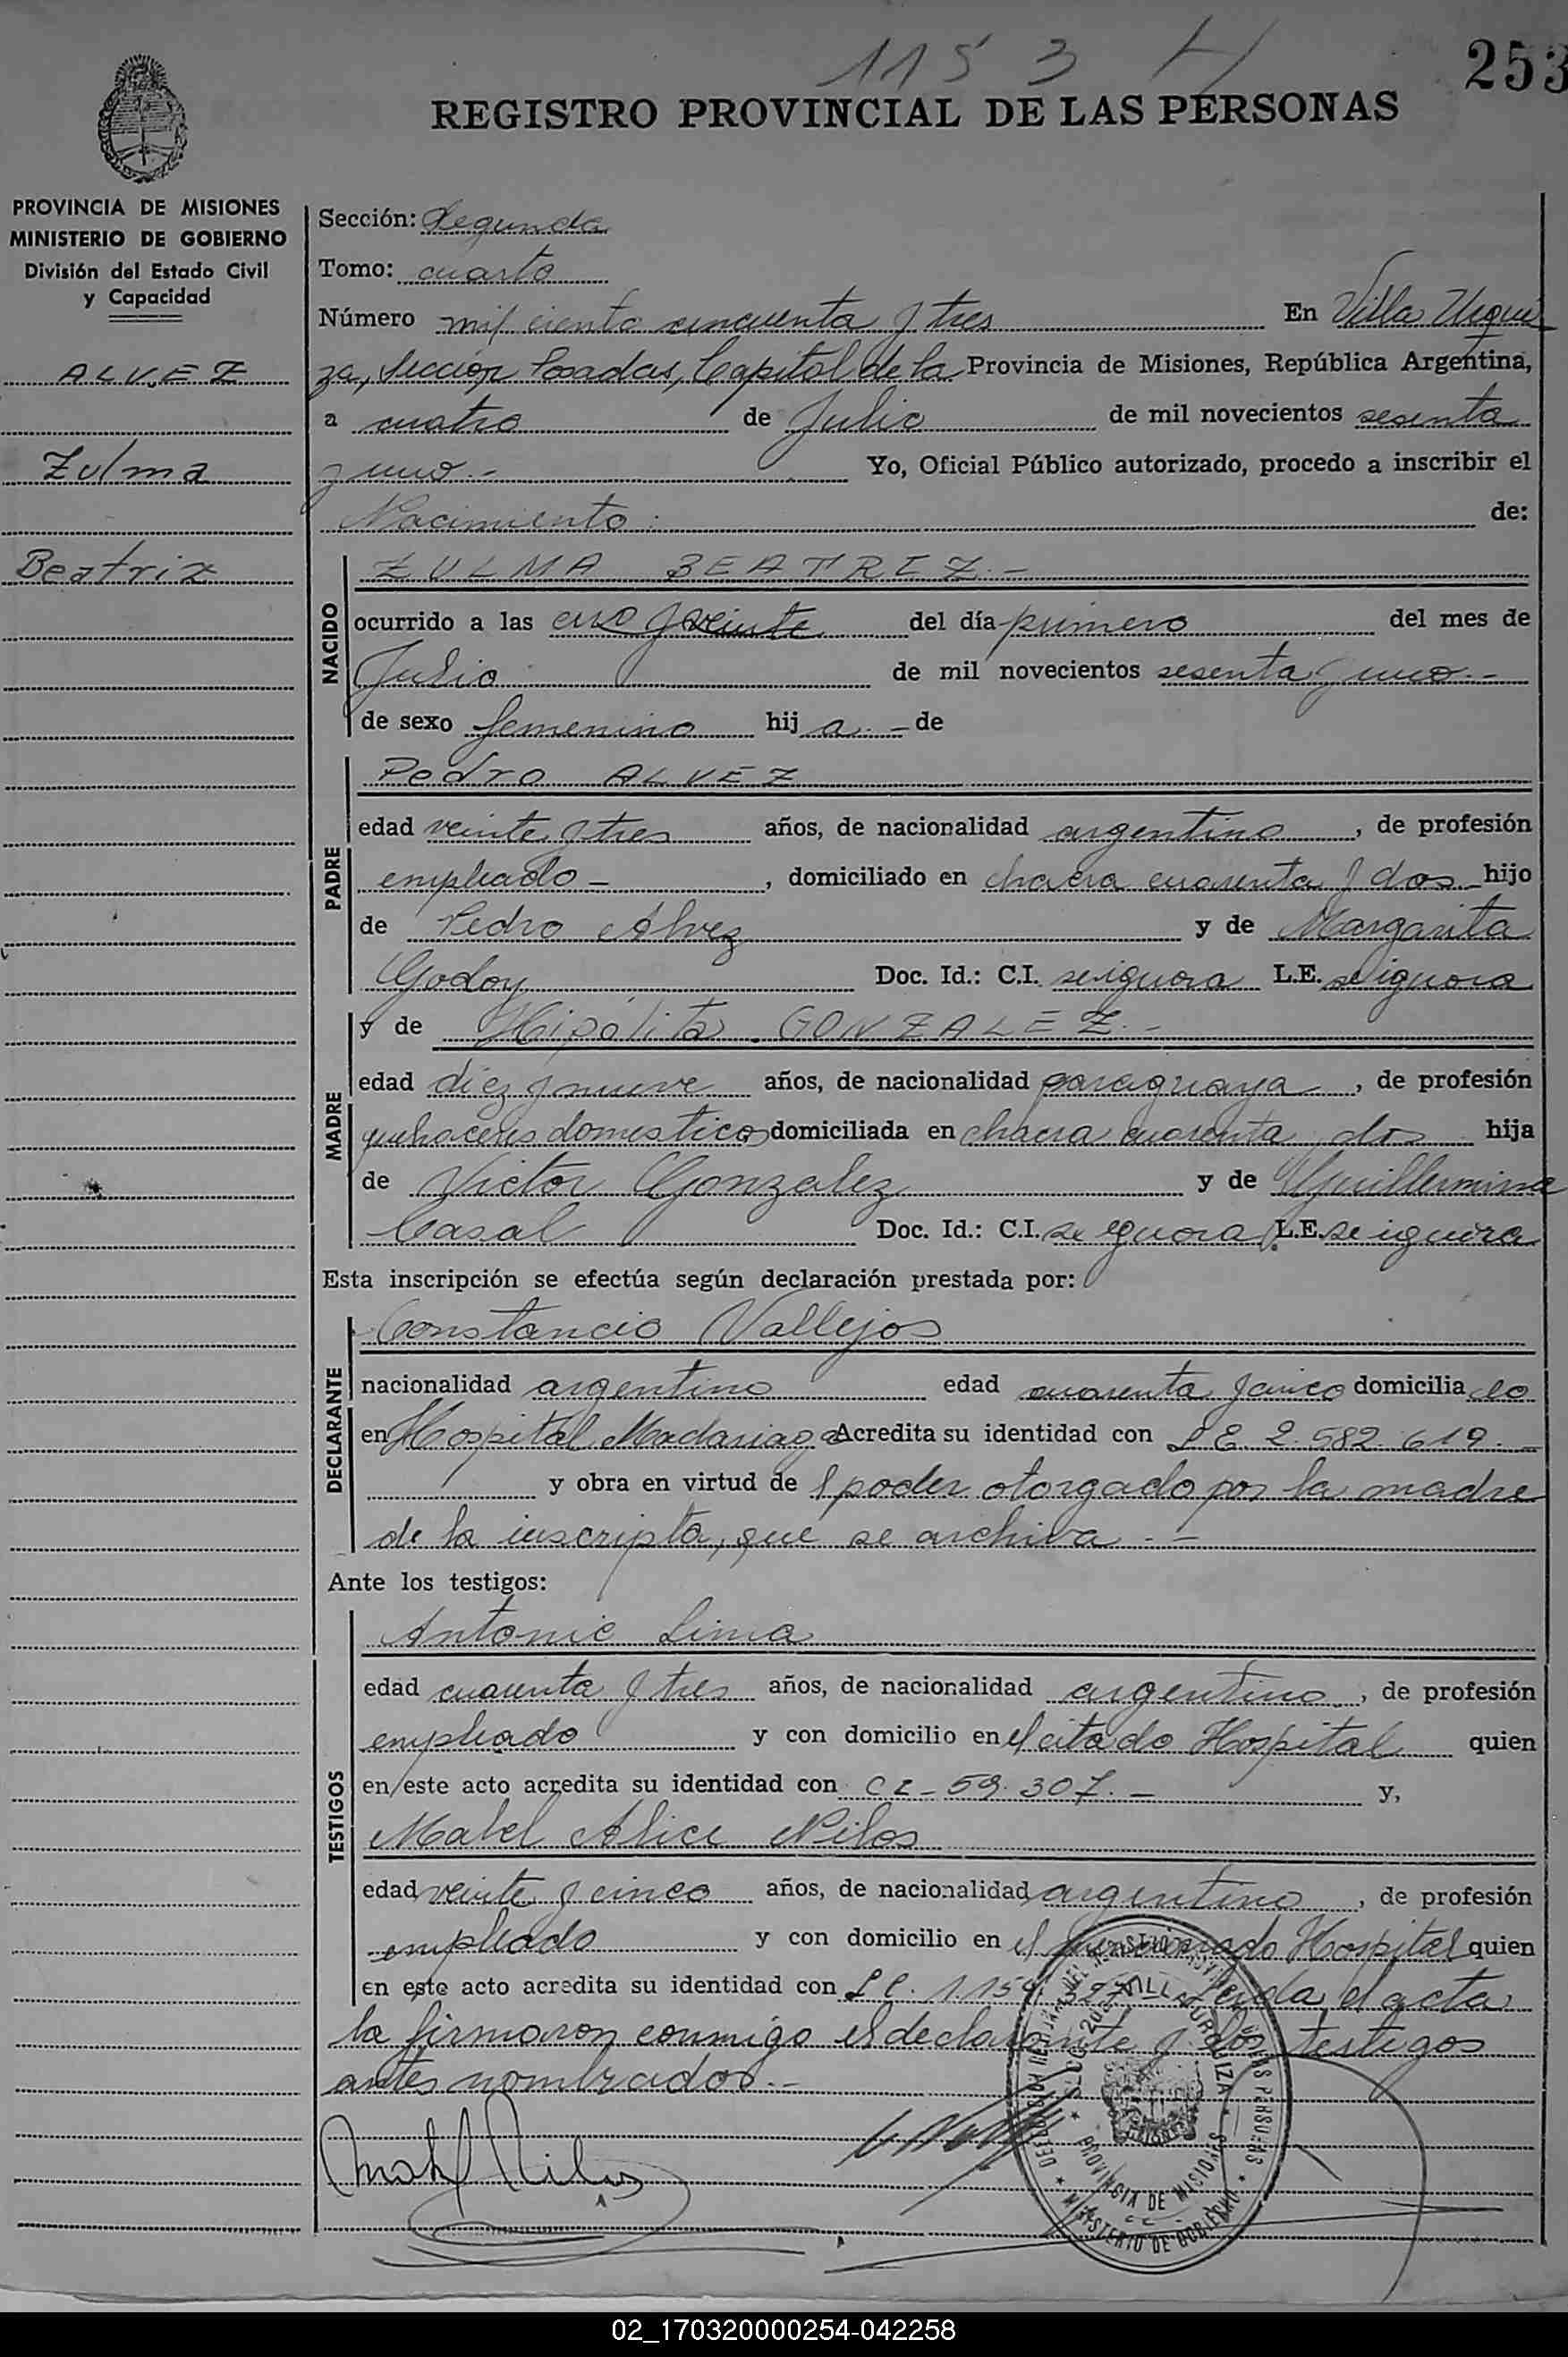 1153
253
REGISTRO PROVINCIAL DE LAS PERSONAS
PROVINCIA DE MISIONES
MINISTERIO DE GOBIERNO
División del Estado Civil
y Capacidad
ALVEZ
Zulma
Beatriz
Sección: Segunda
Tomo: cuarto
Número mil ciento cincuenta y tres En Villa Urqui
za, Sección Posadas, Capital de la Provincia de Misiones, República Argentina,
a cuatro de Julio de mil novecientos sesenta
y uno.- Yo, Oficial Público autorizado, procedo a inscribir el
Nacimiento: de:
NACIDO
ZULMA BEATRIZ.-
ocurrido a las y veinte del día primero del mes de
Julio de mil novecientos sesenta y uno.-
de sexo femenino hij a.- de
PADRE
Pedro ALVEZ
edad veinte y tres años, de nacionalidad argentino, de profesión
empleado -, domiciliado en chacra cuarenta y dos hijo
de Pedro Alvez y de Margarita
Godoy Doc. Id.: C.I. se ignora L.E. se ignora
MADRE
y de Hipólita GONZALEZ.-
edad diez y nueve años, de nacionalidad paraguaya, de profesión
quehaceres domesticos domiciliada en chacra cuarenta dos hija
de Victor Gonzalez y de Guillermina
Casal Doc. Id.: C.I. se ignora L.E. se ignora
Esta inscripción se efectúa según declaración prestada por:
DECLARANTE
Constancio Vallejos
nacionalidad argentino edad cuarenta y cinco domicilia do
en Hospital Madariaga Acredita su identidad con LE 2.582.619.-
y obra en virtud de l poder otorgado por la madre
de la inscripta, que se archiva.-
Ante los testigos:
TESTIGOS
Antonio Lima
edad cuarenta y tres años, de nacionalidad argentino, de profesión
empleado y con domicilio en el citado Hospital quien
en este acto acredita su identidad con CI-59.307.- y,
Mabel Alice Nilos
edad veinte y cinco años, de nacionalidad argentino, de profesión
empleado y con domicilio en el Hospital quien
en este acto acredita su identidad con LC. 1.159. Leida el acta
la firmaron conmigo el declarante y los testigos
antes nombrados.-
VILLA URQUIZA
PROVINCIA DE MISIONES
MINISTERIO DE GOBIERNO
02_170320000254-042258